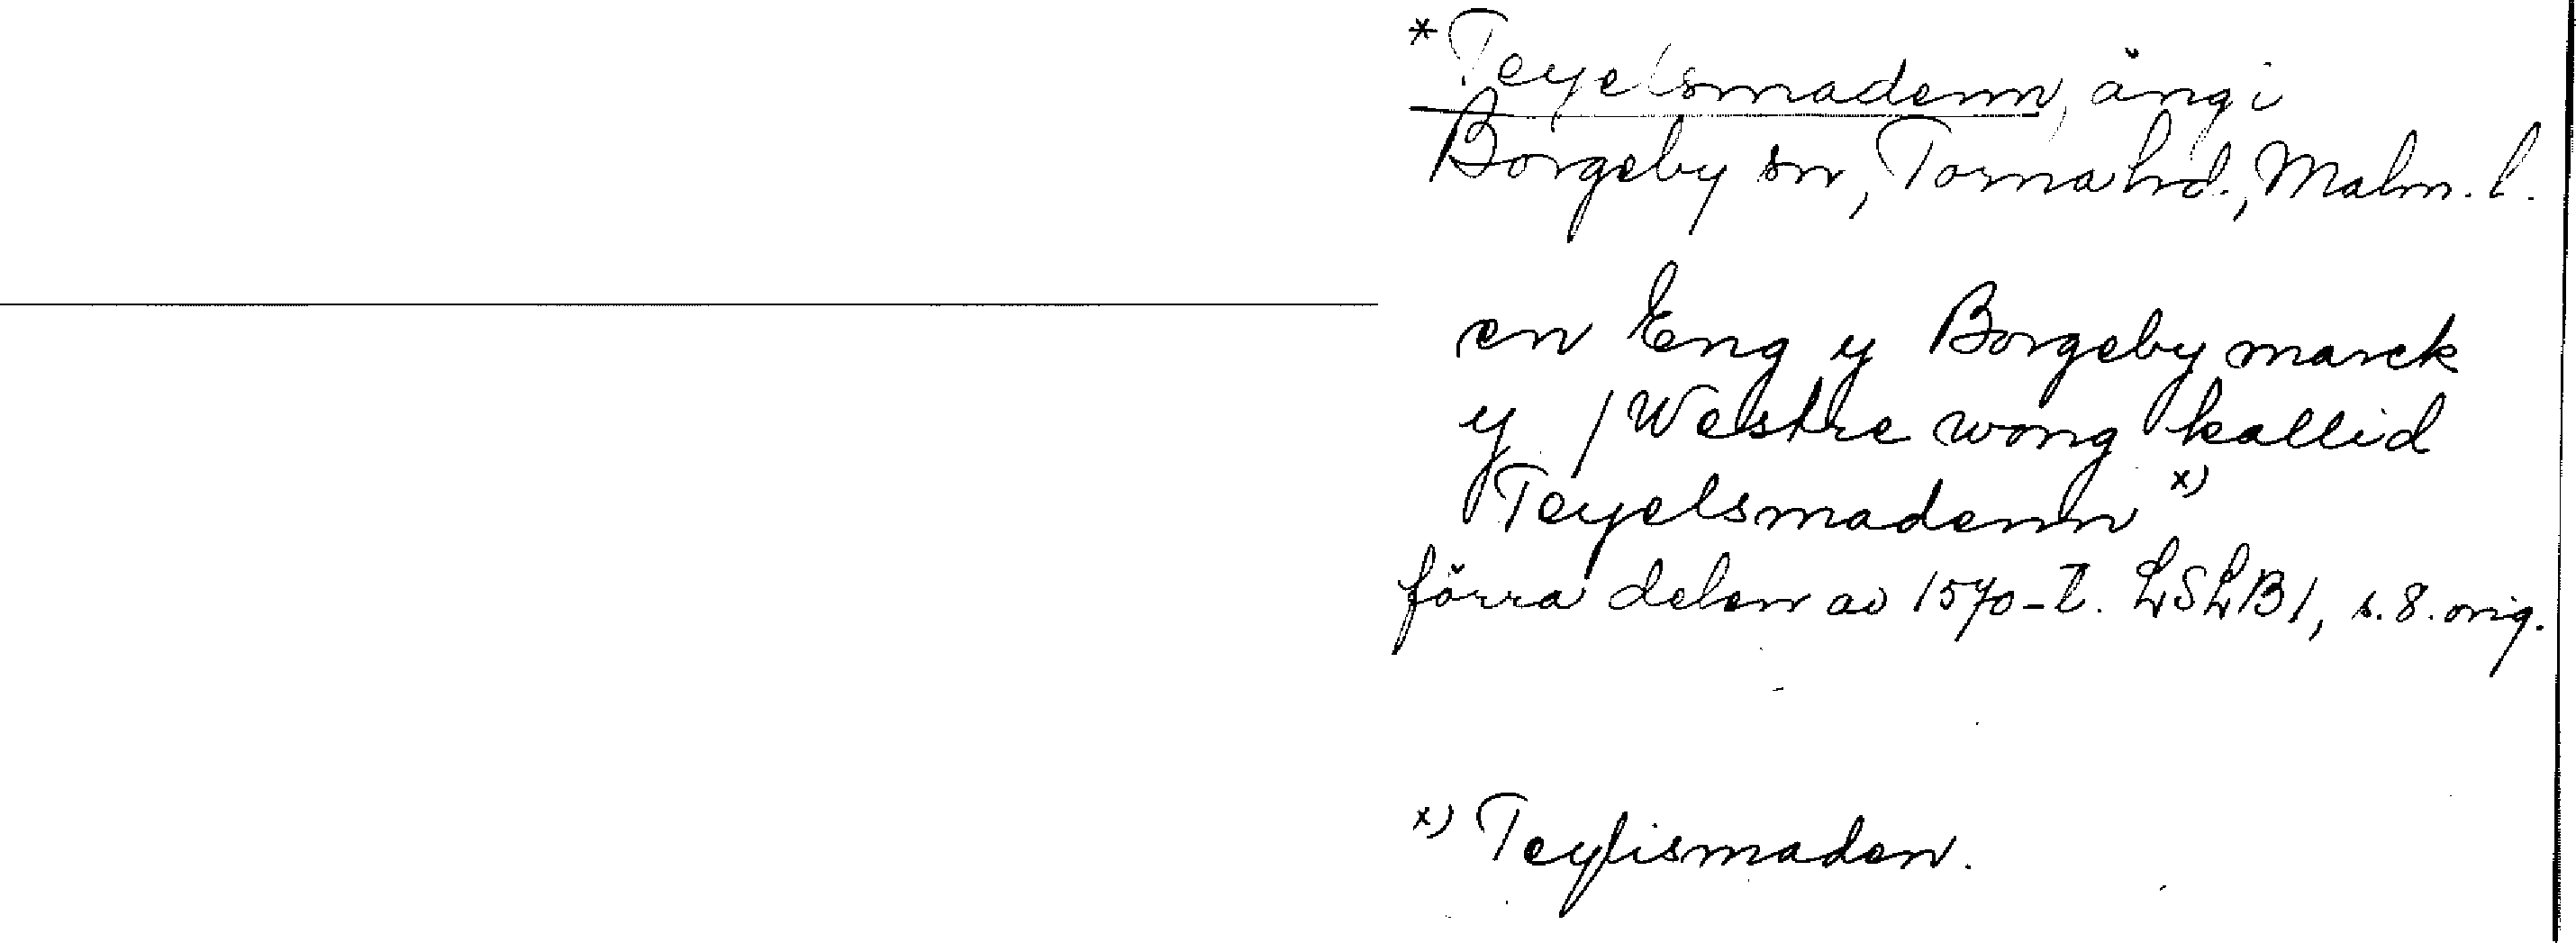 * Teyelsmadenn, äng i
Borgeby sn, Torna hd., Malm. l.
en Eng y Borgeby marck
y / Westre wong kallid
Teyelsmadenn x)
förra delen av 1570-t. LSLB1, s. 8. orig.
x) Teylismaden.